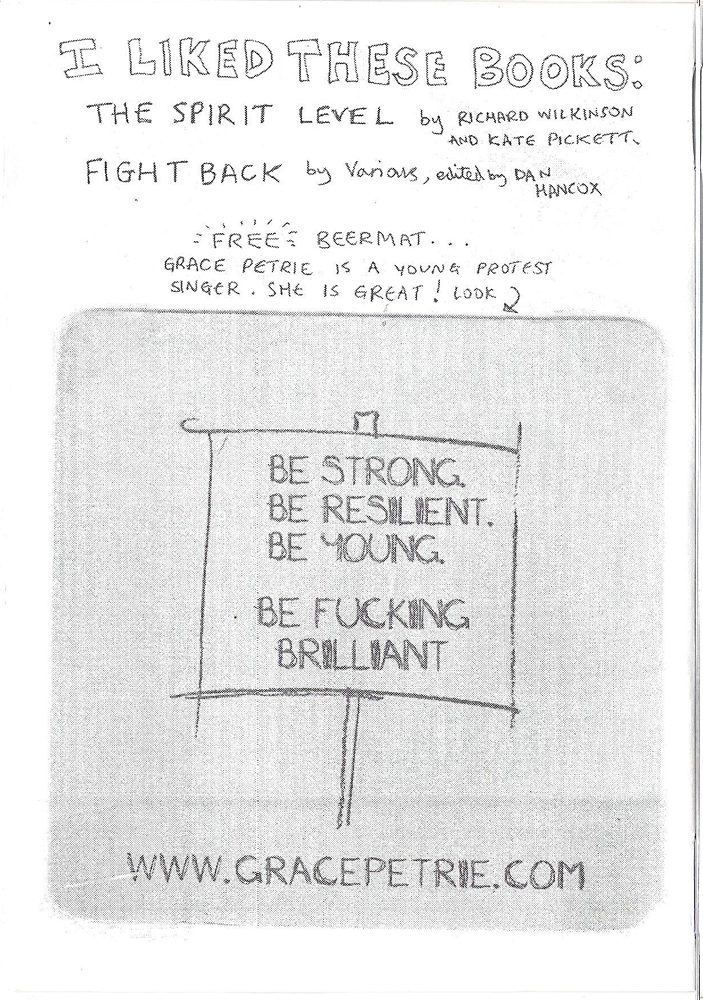 I LIKED THESE BOOKS:
THE SPIRIT LEVEL by RICHARD WILKINSON
AND KATE PICKETT.
FIGHT BACK by Various, edited by DAN
HANCOX
FREE BEERMAT...
GRACE PETRIE IS A YOUNG PROTEST
SINGER. SHE IS GREAT! LOOK
BE STRONG.
BE RESILIENT.
BE YOUNG.
BE FUCKING
BRILLIANT
WWW.GRACEPETRIE.COM